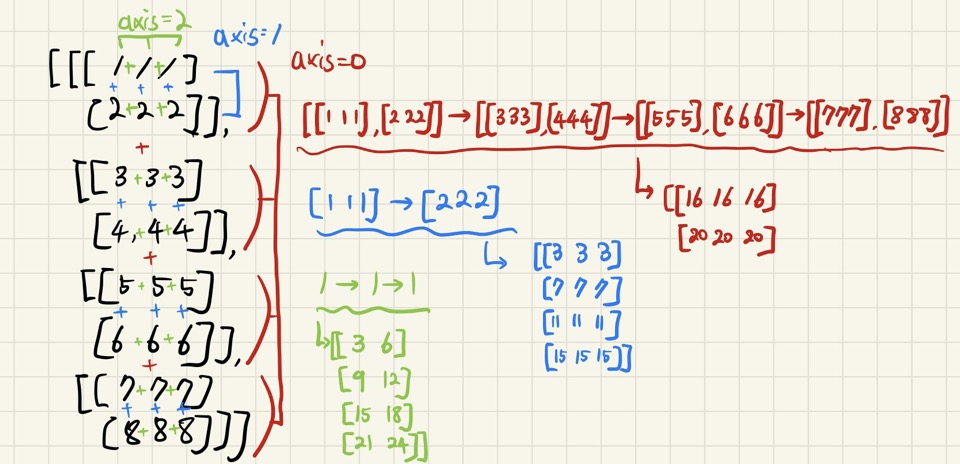 axis=2
axis=1
axis=0
[[[1+1+1]
+ + +
[2+2+2]],
+
[[3+3+3]
+ + +
[4,+4+4]],
+
[[5+5+5]
+ + +
[6+6+6]],
+
[[7+7+7]
+ + +
[8+8+8]]]
[[1 1 1],[2 2 2]]→[[333],[444]]→[[555],[666]]→[[777],[888]]
↳[[16 16 16]
[20 20 20]
[1 1 1]→[222]
↳[[3 3 3]
[7 7 7]
[11 11 11]
[15 15 15]]
1→1→1
↳[[3 6]
[9 12]
[15 18]
[21 24]]